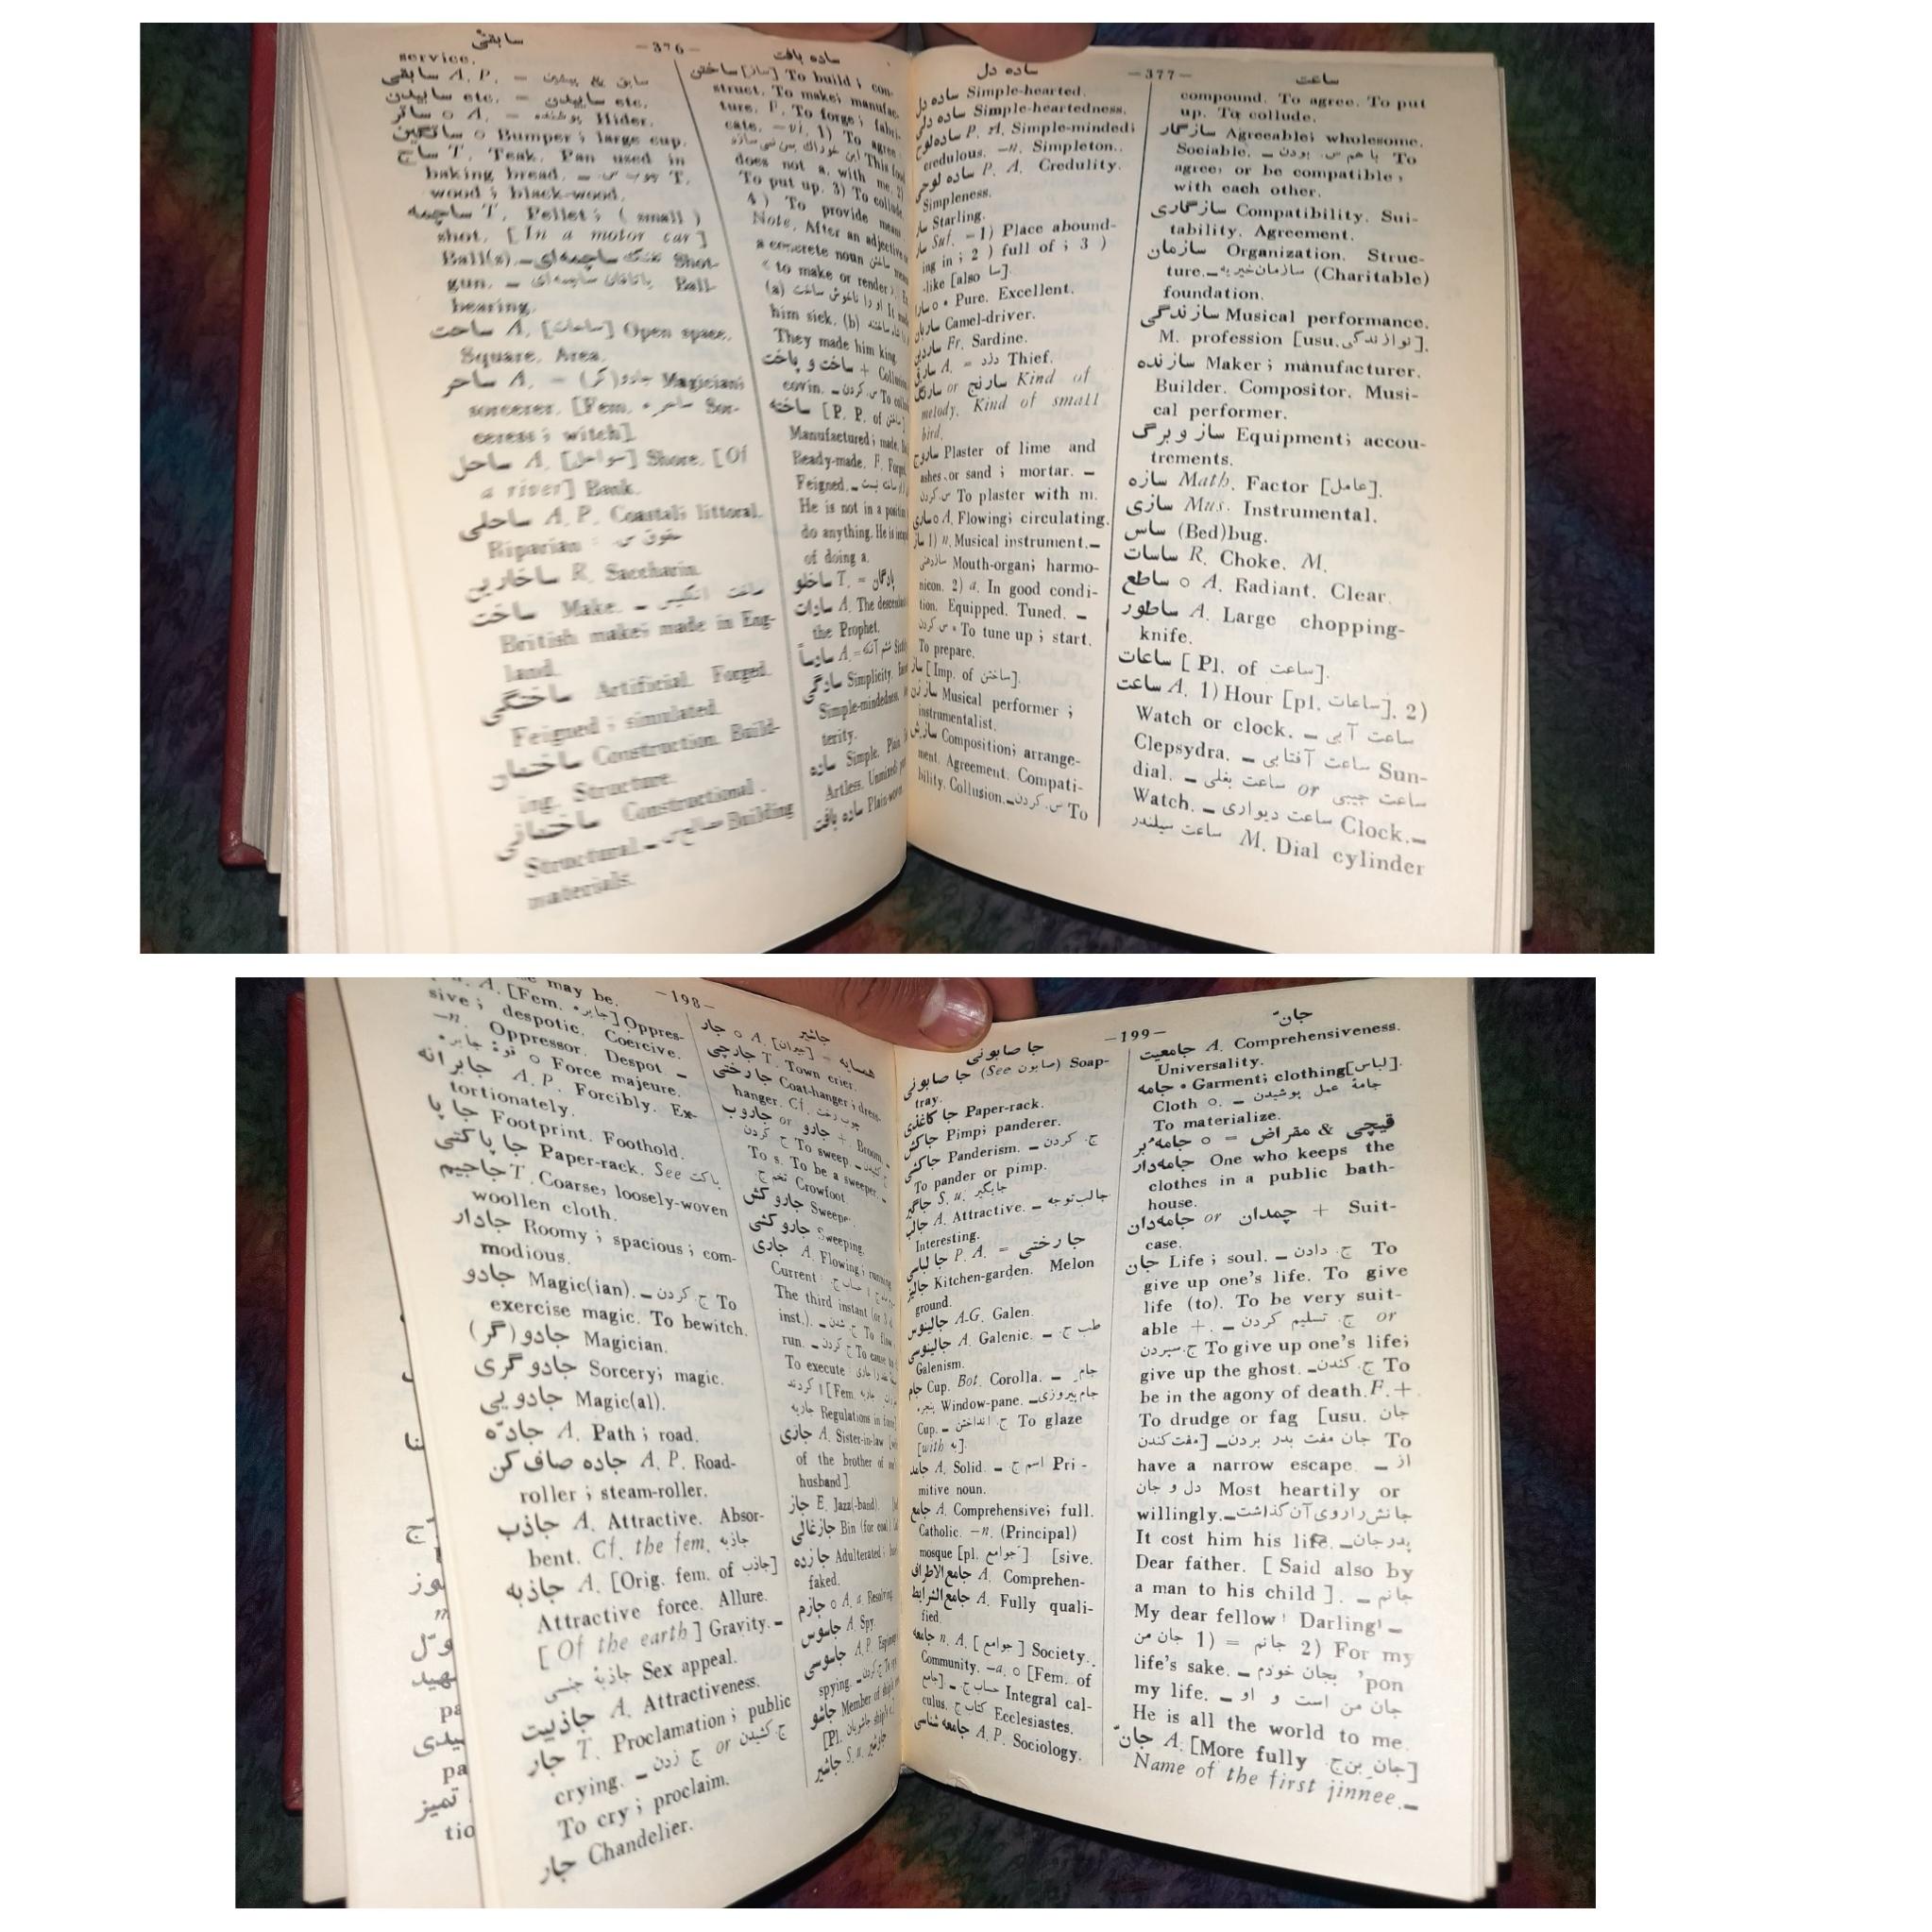 سابقی —376— ساده بافت
service.
سابقی A. P. = سابق & پیشین
ساییدن etc. = ساییدن etc.
ساتر o A. = پوشنده Hider.
ساتگین o Bumper ; large cup.
ساج T. Teak. Pan used in
baking bread. – T.
wood ; black-wood.
ساچمه T. Pellet ; ( small )
shot. [ In a motor car ]
Ball(s). – تفنگ ساچمه‌ای Shot-
gun. – یاتاقان ساچمه‌ای Ball-
bearing.
ساحت A. [ساحات] Open space.
Square. Area.
ساحر A. = جادو(گر) Magician;
sorcerer. [Fem. ساحره Sor-
ceress ; witch].
ساحل A. [سواحل] Shore. [Of
a river] Bank.
ساحلی A. P. Coastal; littoral.
Riparian : حقوق س.
ساخارین R. Saccharin.
ساخت Make. – ساخت انگلیس
British make; made in Eng-
land.
ساختگی Artificial. Forged.
Feigned ; simulated.
ساختمان Construction. Build-
ing. Structure.
ساختمانی Constructional.
Structural. – مصالح س. Building
materials.
ساختن [ساز] To build ; con-
struct. To make; manufac-
ture. F. To forge ; fabri-
cate. –vi. 1) To agree
این خوراک بمن نمی سازد This food
does not a. with me. 2)
To put up. 3) To collude.
4) To provide means
Note. After an adjective
a concrete noun ساختن means
to make or render ;
(a) او را ناخوش ساخت It made
him sick. (b)
They made him king.
ساخت و پاخت + Collusion
covin. – س. کردن To
ساخته [P. P. of ساختن]
Manufactured ; made.
Ready-made. F. Forged.
Feigned. –
He is not in a position
do anything. He is
of doing a.
ساخلو T. = پادگان
سادات A. The descendants
the Prophet.
سادساً A. = ششم آنکه
سادگی Simplicity.
Simple-mindedness.
terity.
ساده Simple. Plain
Artless. Unmixed;
ساده بافت Plain-woven.
ساده دل —377— ساعت
ساده دل Simple-hearted.
ساده دلی Simple-heartedness.
ساده‌لوح P. A. Simple-minded;
credulous. –n. Simpleton.
ساده لوحی P. A. Credulity.
Simpleness.
سار Starling.
سار Suf. –1) Place abound-
ing in ; 2 ) full of ; 3 )
-like [also سا].
سارا o • Pure. Excellent.
ساربان Camel-driver.
ساردین Fr. Sardine.
سارق A. = دزد Thief.
سارنگ or سارنج Kind of
melody. Kind of small
bird.
ساروج Plaster of lime and
ashes or sand ; mortar. –
س. کردن To plaster with m.
ساری o A. Flowing; circulating.
ساز 1) n. Musical instrument. –
سازدهنی Mouth-organ; harmo-
nicon. 2) a. In good condi-
tion. Equipped. Tuned. –
س. کردن • To tune up ; start.
To prepare.
ساز [Imp. of ساختن].
ساز زن Musical performer ;
instrumentalist.
سازش Composition; arrange-
ment. Agreement. Compati-
bility. Collusion. – س. کردن To
compound. To agree. To put
up. To collude.
سازگار Agreeable; wholesome.
Sociable. – با هم س. بودن To
agree; or be compatible ;
with each other.
سازگاری Compatibility. Sui-
tability. Agreement.
سازمان Organization. Struc-
ture. – سازمان خیریه (Charitable)
foundation.
سازندگی Musical performance.
M. profession [usu. نوازندگی].
سازنده Maker ; manufacturer.
Builder. Compositor. Musi-
cal performer.
ساز و برگ Equipment; accou-
trements.
سازه Math. Factor [عامل].
سازی Mus. Instrumental.
ساس (Bed)bug.
ساسات R. Choke. M.
ساطع o A. Radiant. Clear.
ساطور A. Large chopping-
knife.
ساعات [ Pl. of ساعت].
ساعت A. 1) Hour [pl. ساعات]. 2)
Watch or clock. – ساعت آبی
Clepsydra. – ساعت آفتابی Sun-
dial. – ساعت بغلی or ساعت جیبی
Watch. – ساعت دیواری Clock. –
ساعت سیلندر M. Dial cylinder
—198— جاشیر
may be.
A. [Fem. جابره] Oppres-
sive ; despotic. Coercive.
–n. Oppressor. Despot –
قوهٔ جابره o Force majeure.
جابرانه A. P. Forcibly. Ex-
tortionately.
جا پا Footprint. Foothold.
جا پاکتی Paper-rack. See پاکت
جاجیم T. Coarse, loosely-woven
woollen cloth.
جادار Roomy ; spacious ; com-
modious.
جادو Magic(ian). – ج. کردن To
exercise magic. To bewitch.
جادو(گر) Magician.
جادو گری Sorcery; magic.
جادویی Magic(al).
جادّه A. Path ; road.
جاده صاف کن A. P. Road-
roller ; steam-roller.
جاذب A. Attractive. Absor-
bent. Cf. the fem. جاذبه
جاذبه A. [Orig. fem. of جاذب]
Attractive force. Allure.
[ Of the earth ] Gravity. –
جاذبهٔ جنسی Sex appeal.
جاذبیت A. Attractiveness.
جار T. Proclamation ; public
crying. – ج زدن or ج کشیدن
To cry ; proclaim.
جار Chandelier.
جار o A. [جیران] = همسایه
جارچی T. Town crier.
جا رختی Coat-hanger ; dress-
hanger. Cf. چوب رخت
جاروب or جارو +. Broom. –
ج کردن To sweep. –
To s. To be a sweeper. –
تخم ج Crowfoot.
جارو کش Sweeper.
جارو کشی Sweeping.
جاری A. Flowing ; running
Current :
The third instant (or 3 d.
inst.). – ج شدن To flow
run. – ج کردن To cause
To execute
[Fem. جاریه
Regulations in force]
جاری A. Sister-in-law
of the brother of
husband].
جاز E. Jazz(-band).
جازغالی Bin (for coal)
جازده Adulterated ;
faked.
جازم o A. a. Resolving
جاسوس A. Spy.
جاسوسی A. P. Espionage
spying. – ج کردن To spy
جاشو Member of ship's
[Pl. جاشویان
جاشیر S. u.
جا صابونی —199— جانّ
جا صابونی (See صابون) Soap-
tray.
جا کاغذی Paper-rack.
جاکش Pimp; panderer.
جاکشی Panderism. – ج. کردن
To pander or pimp.
جاگیر S. u. جایگیر
جالب A. Attractive. – جالب توجه
Interesting.
جا لباسی P. A. = جا رختی
جالیز Kitchen-garden. Melon
ground.
جالینوس A.G. Galen.
جالینوسی A. Galenic. – طب ج.
Galenism.
جام Cup. Bot. Corolla. – جام
پنجره Window-pane. – جام پیروزی
Cup. – ج. انداختن To glaze
[with به].
جامد A. Solid. – اسم ج Pri-
mitive noun.
جامع A. Comprehensive; full.
Catholic. –n. (Principal)
mosque [pl. جوامع] [sive.
جامع‌الاطراف A. Comprehen-
جامع‌الشرایط A. Fully quali-
fied.
جامعه n. A. [ جوامع ] Society.
Community. –a. o [Fem. of
جامع]. – حساب ج Integral cal-
culus. کتاب ج Ecclesiastes.
جامعه شناسی A. P. Sociology.
جامعیت A. Comprehensiveness.
Universality.
جامه • Garment; clothing[لباس].
Cloth o. – جامهٔ عمل پوشیدن
To materialize.
جامه‌بُر o = قیچی & مقراض
جامه‌دار One who keeps the
clothes in a public bath-
house.
جامه‌دان or چمدان + Suit-
case.
جان Life ; soul. – ج. دادن To
give up one's life. To give
life (to). To be very suit-
able +. – ج. تسلیم کردن or
ج. سپردن To give up one's life;
give up the ghost. – ج. کندن To
be in the agony of death. F. +.
To drudge or fag [usu. جان
مفت کندن]. – جان مفت بدر بردن To
have a narrow escape. – از
دل و جان Most heartily or
willingly. – جانش را روی آن گذاشت
It cost him his life. – پدر جان
Dear father. [ Said also by
a man to his child ]. – جانم
My dear fellow ! Darling! –
جان من 1) = جانم 2) For my
life's sake. – بجان خودم 'pon
my life. – جان من است و او
He is all the world to me.
جانّ A. [More fully جان بن ج]
Name of the first jinnee. –